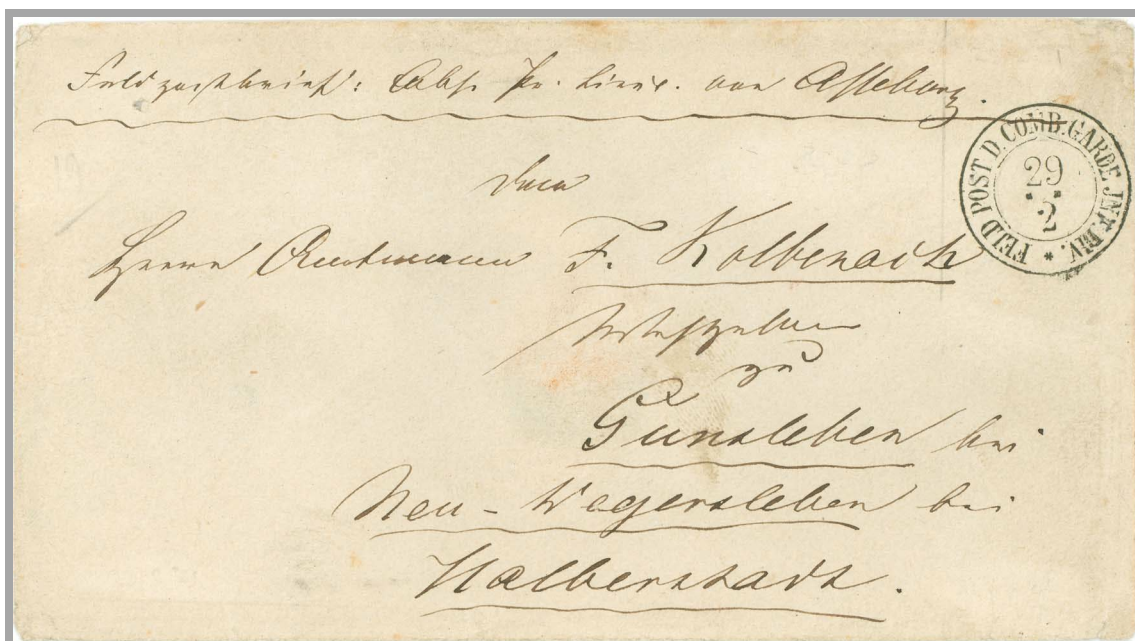 Feldpostbrief: Abs. Pr. Lieut. von Asseburg.
FELD POST D. COMB. GARDE. INF. DIV.
29
2
dem
Herrn Amtmann F. Kolbenach
zu
Gunsleben bei
Neu-Wegersleben bei
Halberstadt.